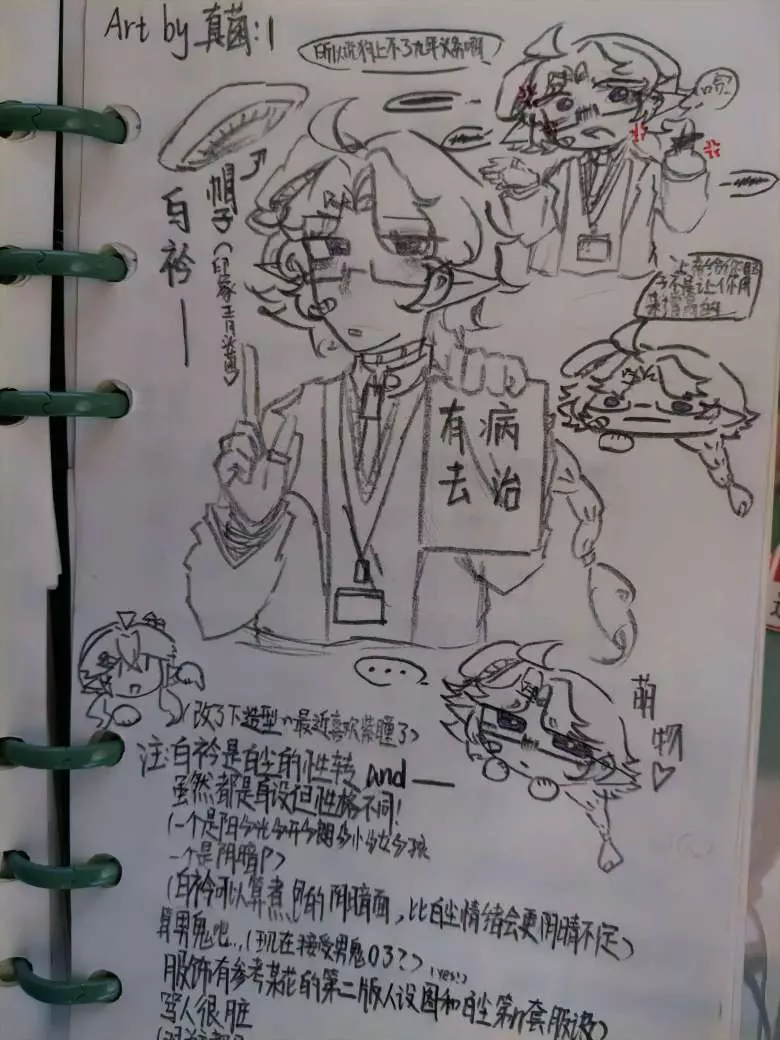 Art by 真菌:1
所以说狗上不了九年义务啊
哼!
帽子(印象青蓝)
白衿一
让你
今不是让你用
来
有病
去治
...
萌物♡
(改了下造型^^最近喜欢紫瞳了)
注:白衿是白尘的性转 and —
虽然都是自设但性格不同!
(一个是阳今光今开今朗今小今女今孩
一个是阴暗P>
(白衿可以算煮的阴暗面,比白尘情绪会更阴晴不定>
算男鬼吧..(现在接受男鬼03?>(Yes!)
服饰有参考某花的第二版人设图和白尘第n套服设>
骂人很脏